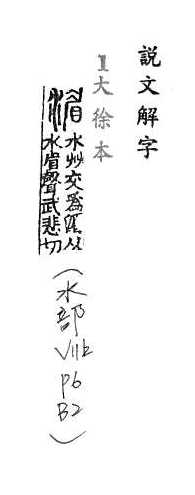 説文解字
1大徐本
湄水艸交爲湄从
水眉聲武悲切
(水部
VIIb
p6
B2)